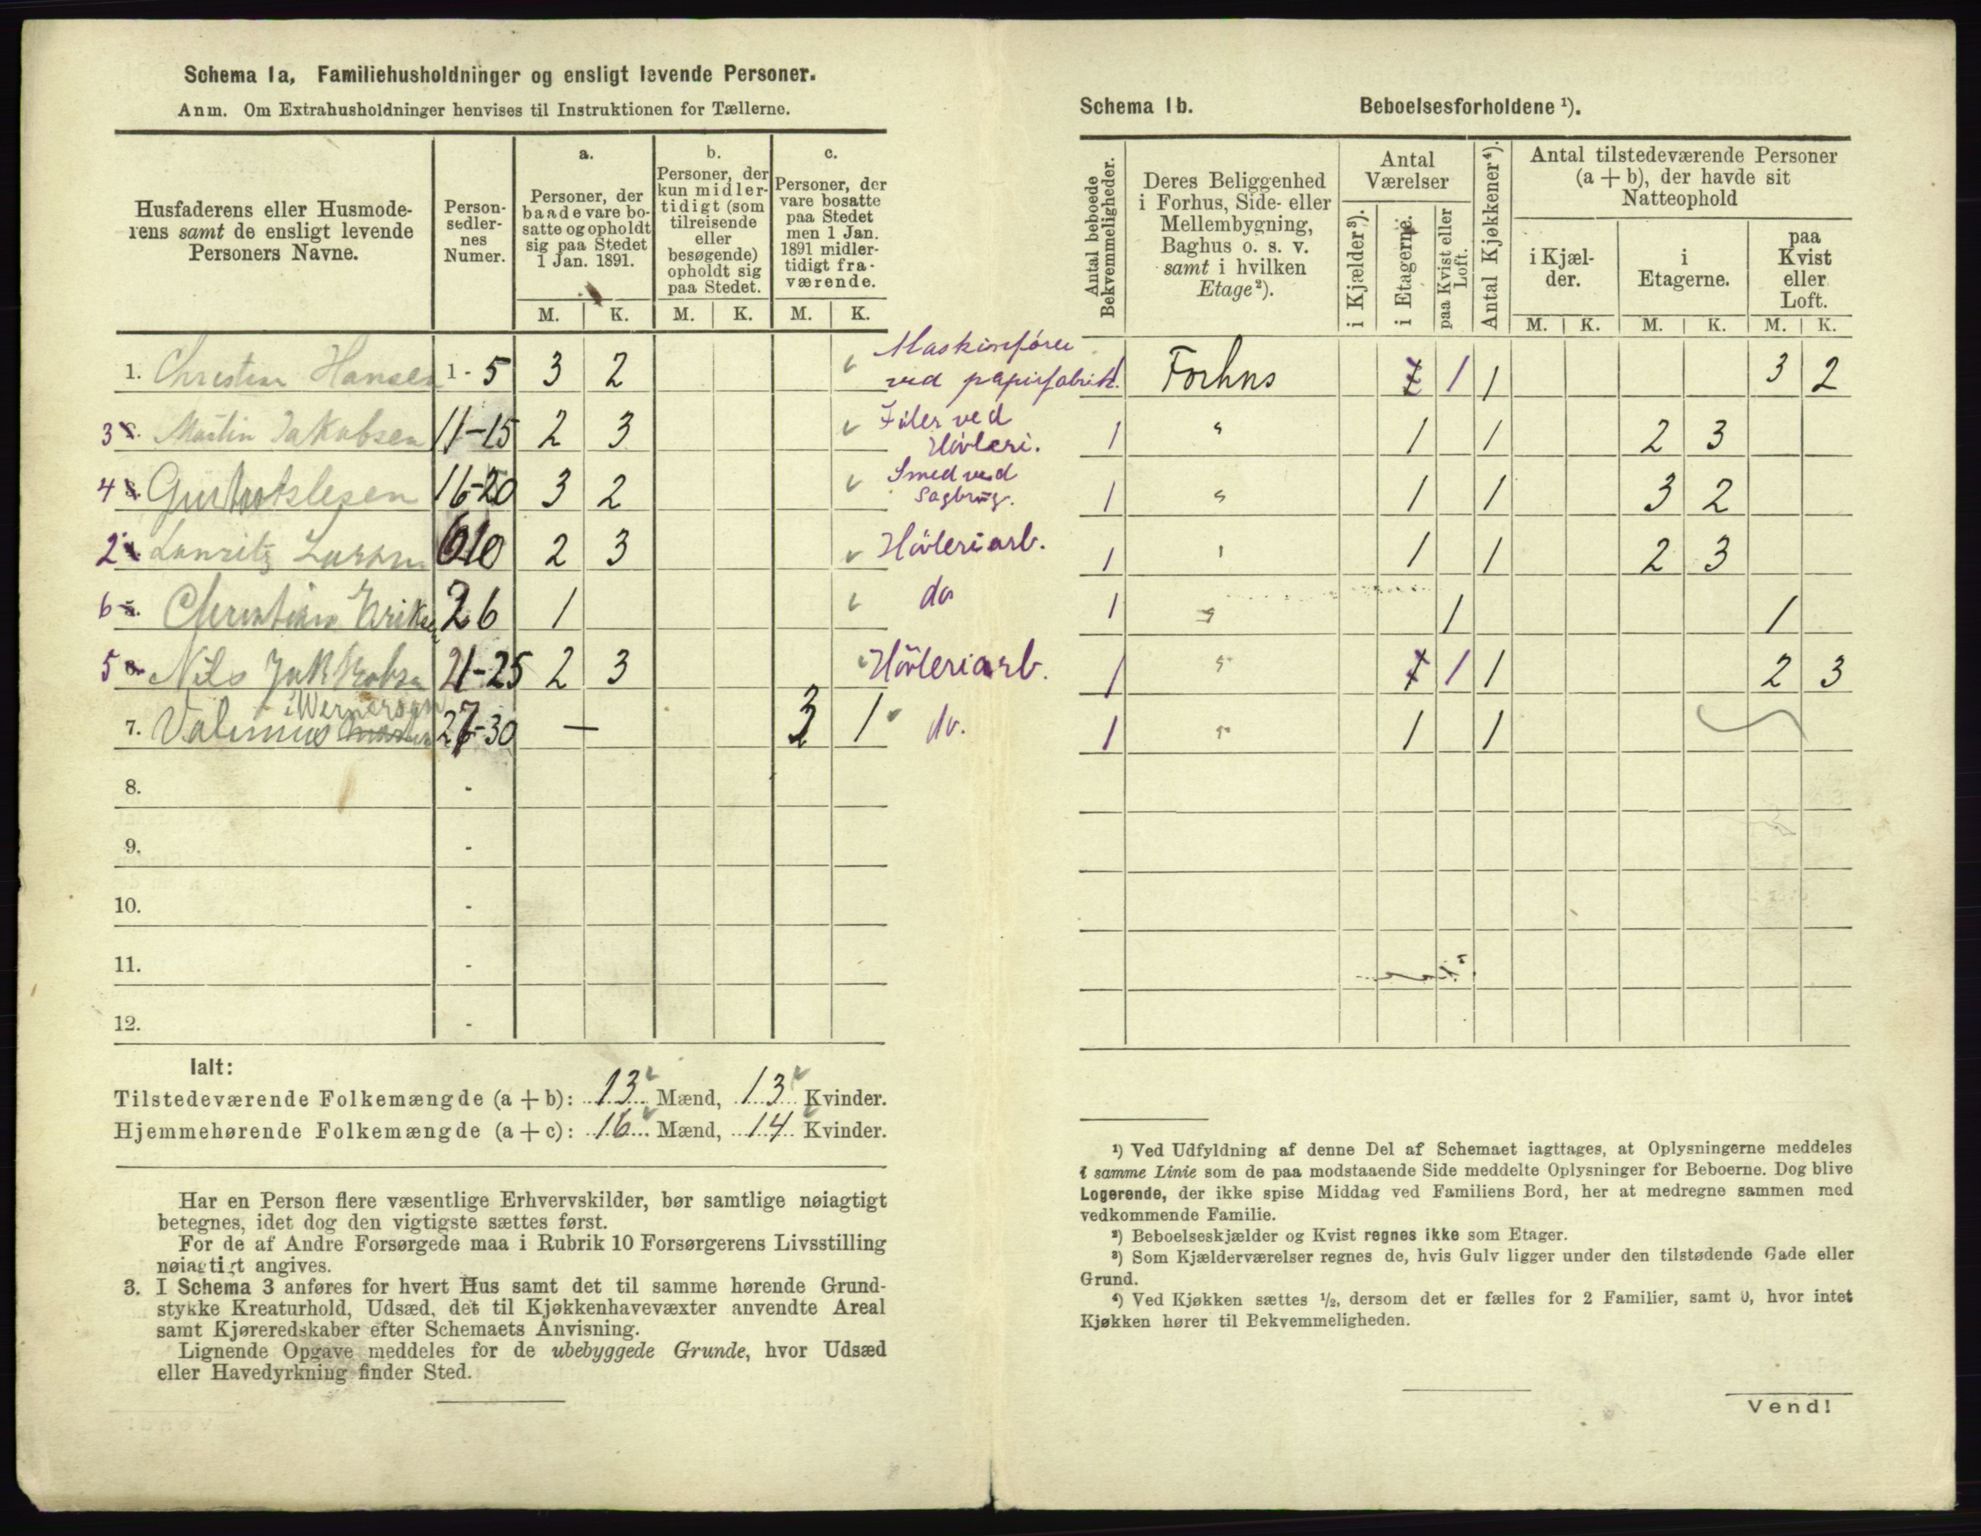 Schema 1a, Familiehusholdninger og ensligt levende Personer.
Anm. Om Extrahusholdninger henvises til Instruktionen for Tællerne.
Husfaderens eller Husmode-
rens samt de ensligt levende
Personers Navne.
Person-
sedler-
nes
Numer.
a.
Personer, der
baade vare bo-
satte og opholdt
sig paa Stedet
1 Jan. 1891.
b.
Personer, der
kun midler-
tidigt (som
tilreisende
eller
besøgende)
opholdt sig
paa Stedet.
c.
Personer, der
vare bosatte
paa Stedet
men 1 Jan.
1891 midler-
tidigt fra-
værende.
M. K. M. K. M. K.
1. Christian Hansen 1 - 5 3 2 Maskinfører
ved papirfabrik.
3 Martin Jakobsen 11-15 2 3 Filer ved
Høvleri.
4 16-20 3 2 Smed ved
Sagbrug.
2 Lauritz Larsen 6-10 2 3 Høvleriarb.
6 Christian Eriksen 26 1 do
5 Nils Jakobsen 21-25 2 3 Høvleriarb.
Wernersen
7. Valinius 27-30 — 3 1 do.
8. -
9. -
10. -
11. -
12. -
Ialt:
Tilstedeværende Folkemængde (a + b): 13 Mænd, 13 Kvinder.
Hjemmehørende Folkemængde (a + c): 16 Mænd, 14 Kvinder.
Har en Person flere væsentlige Erhvervskilder, bør samtlige nøiagtigt
betegnes, idet dog den vigtigste sættes først.
For de af Andre Forsørgede maa i Rubrik 10 Forsørgerens Livsstilling
nøiagtigt angives.
3. I Schema 3 anføres for hvert Hus samt det til samme hørende Grund-
stykke Kreaturhold, Udsæd, det til Kjøkkenhavevæxter anvendte Areal
samt Kjøreredskaber efter Schemaets Anvisning.
Lignende Opgave meddeles for de ubebyggede Grunde, hvor Udsæd
eller Havedyrkning finder Sted.
Schema 1b. Beboelsesforholdene ¹).
Antal beboede
Bekvemmeligheder.
Deres Beliggenhed
i Forhus, Side- eller
Mellembygning,
Baghus o. s. v.
samt i hvilken
Etage²).
Antal
Værelser
i Kjælder³).
i Etagerne.
paa Kvist eller
Loft.
Antal Kjøkkener⁴).
Antal tilstedeværende Personer
(a + b), der havde sit
Natteophold
i Kjæl-
der.
i
Etagerne.
paa
Kvist
eller
Loft.
M. K. M. K. M. K.
1 Forhus 1 1 3 2
1 " 1 1 2 3
1 " 1 1 3 2
1 " 1 1 2 3
1 " 1 1
1 " 1 1 2 3
1 " 1 1
¹) Ved Udfyldning af denne Del af Schemaet iagttages, at Oplysningerne meddeles
i samme Linie som de paa modstaaende Side meddelte Oplysninger for Beboerne. Dog blive
Logerende, der ikke spise Middag ved Familiens Bord, her at medregne sammen med
vedkommende Familie.
²) Beboelseskjælder og Kvist regnes ikke som Etager.
³) Som Kjælderværelser regnes de, hvis Gulv ligger under den tilstødende Gade eller
Grund.
⁴) Ved Kjøkken sættes ½, dersom det er fælles for 2 Familier, samt 0, hvor intet
Kjøkken hører til Bekvemmeligheden.
Vend!